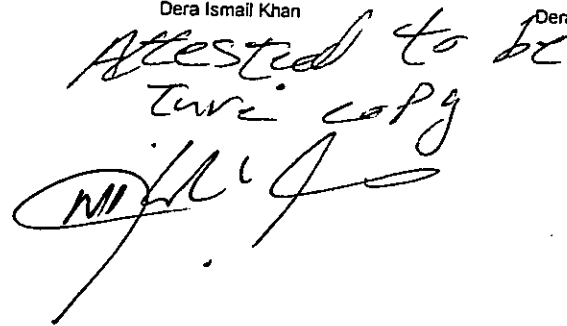 Dera Ismail Khan Dera
Attested to be
Ture copy